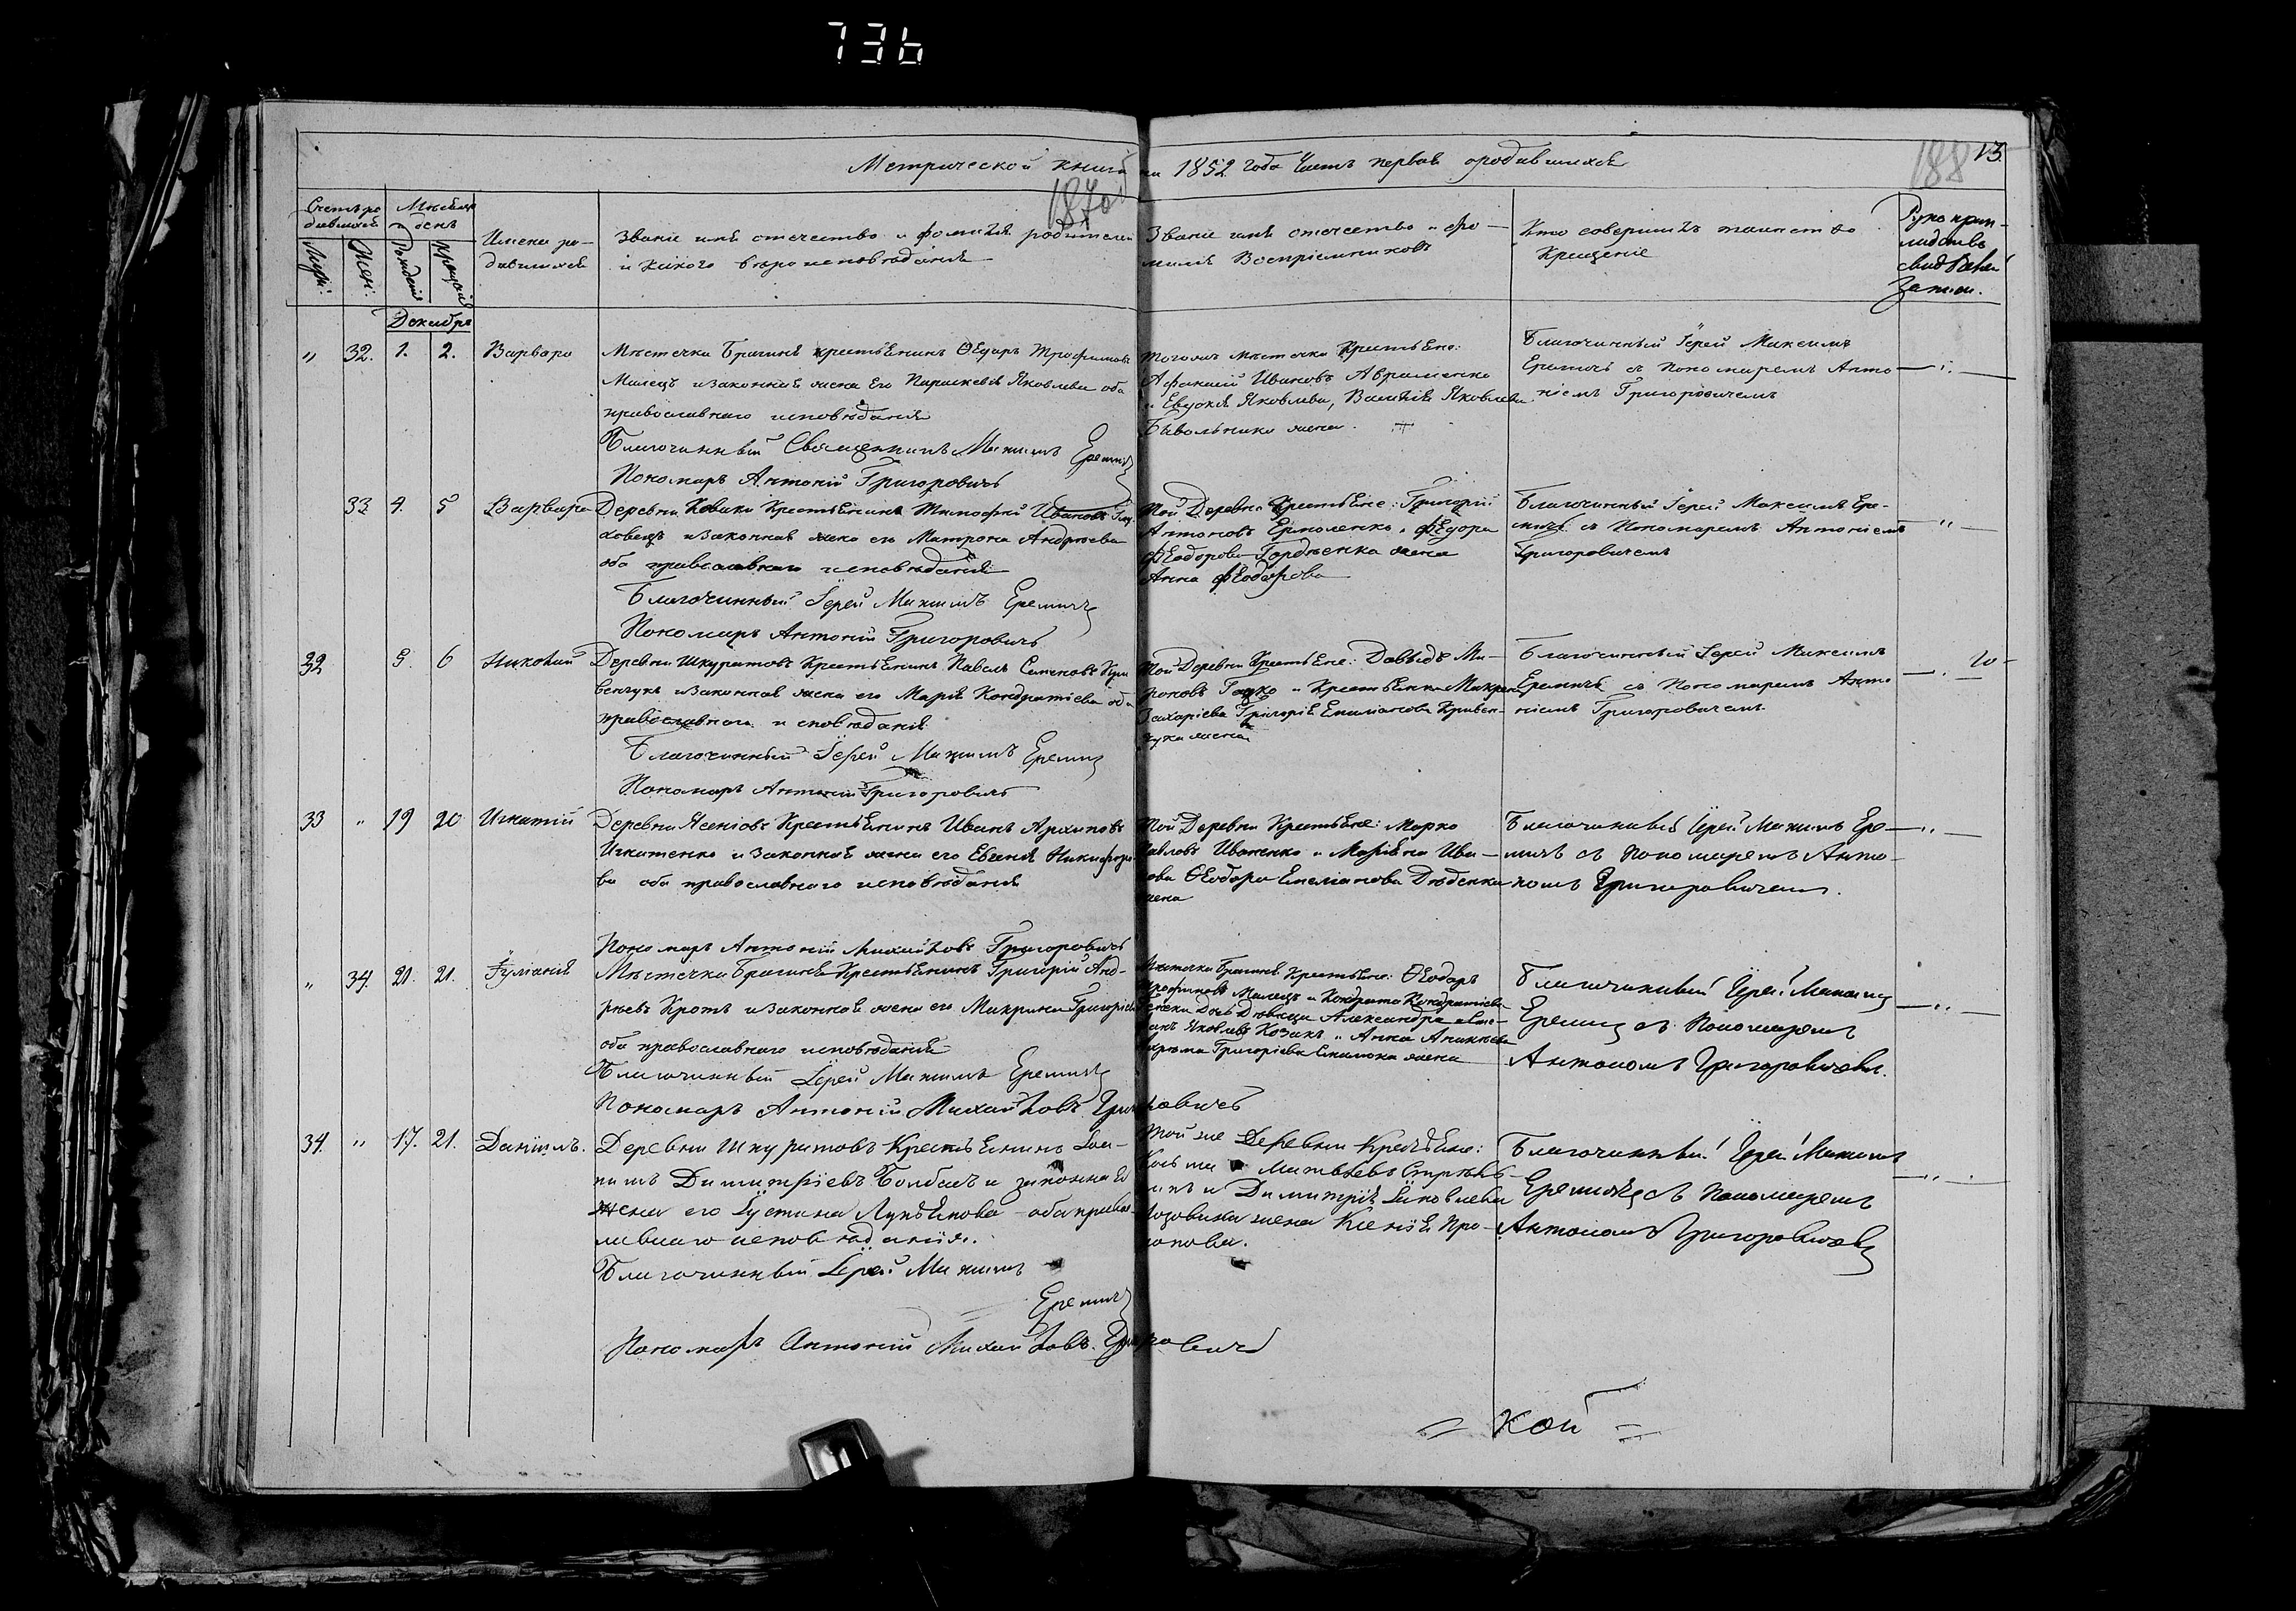 736
Метрической книги на 1852 года Часть первая ородившихся
187об
188
13.
Счетъ родившихся
Мѣсяцъ и день
Муж:
Жен:
Рожденія
Крещенія
Имена родившихся
Званіе имя отечество и фамилія родителей
и какого вѣроисповѣданія
Званіе имя отечество и фо-
милія Воспріемниковъ
Кто совершалъ таинство
Крещеніе
Рукоприк-
лидство
свидѣтелей
Декабрь
" 32. 1. 2. Варвара
Мѣстечка Брагина крестьянинъ Ѳедоръ Трофимовъ
Милецъ изаконная жена его Параскева Яковлева оба
православнаго исповѣданія
Благочинный Священникъ Максимъ Еремичъ
Пономарь Антоній Григоровичъ
тогожъ мѣстечка Крестьяне:
Афанасій Ивановъ Авраменко
и Евдокія Яковлева,
жена.
Благочинный Іерей Максимъ
Еремичъ съ пономаремъ Анто
ніемъ Григоровичемъ
33 4. 5 Варвара
Деревни Коваки Крестьянинъ Тимофей Ивановъ
ховецъ изаконная жена его Матрона Андреева
оба православнаго исповѣданія
Благочинный Іерей Максимъ Еремичъ
Пономарь Антоній Григоровичъ
той Деревни Крестьяне: Григорій
Антоновъ Ермоленко и Фёдора
Феодорова Гордѣенка жена
Анна Феодорова
Благочинный Іерей Максимъ Ере-
мичъ съ Пономаремъ Антоніемъ
Григоровичемъ
32 5. 6 Николай
Деревни Шкуратовъ Крестьянинъ Павелъ Семеновъ Кри
венчукъ изаконная жена его Марія Кондратіева оба
православнаго исповѣданія
Благочинный Іерей Максимъ Еремичъ
Пономарь Антоній Григоровичъ
той Деревни Крестьяне: Давыдъ Ми-
роновъ и Крестьянка Макрина
Захаріева Григорія Емиліанова Кривен-
чука жена
Благочинный Іерей Максимъ
Еремичъ съ Пономаремъ Анто
ніемъ Григоровичемъ
33 " 19 20 Игнатій
Деревни Ясеніовъ Крестьянинъ Иванъ Архиповъ
Игнатенко изаконная жена его Евгенія Никифоро
ва оба православнаго исповѣданія
Пономарь Антоній Михайловъ Григоровичъ
той Деревни Крестьяне: Марко
Павловъ Иваненко и Маріяна Ива-
ова Ѳеодора Емеліанова Дюденки
жена
Благочинный Іерей Максимъ Ере
мичъ съ Пономаремъ Анто-
номъ Григоровичемъ.
" 34. 21. 21. Іуліанія
Мѣстечка Брагина Крестьянинъ Григорій Анд-
рѣевъ Кротъ изаконная жена его Макрина Григоріева
оба православнаго исповѣданія
Благочинный Іерей Максимъ Еремичъ
Пономарь Антоній Михайловъ Григоровичъ
Мѣстечка Брагина Крестьяне: Ѳеодоръ
Трофимовъ Милецъ и Кондрата Кондратіева
Дочь Дѣвица Александра
Яковлевъ Козакъ и Анна
Григоріева жена
Благочинный Іерей Максимъ
Еремичъ съ Пономаремъ
Антономъ Григоровичемъ.
34. " 17. 21. Даніилъ.
Деревни Шкуратовъ Крестьянинъ Іоа-
нимъ Димитріевъ Болбасъ и законная
жена его Іустина Лукьянова оба право-
славнаго исповѣданія.
Благочинный Іерей Максимъ
Еремичъ
Пономарь Антоній Михайловъ Григоровичъ
Той же Деревни Крестьяне:
Козьма Матвѣевъ
и Димитрія Іаковлева
жена Ксенія Про-
копова.
Благочинный Іерей Максимъ
Еремичъ съ Пономаремъ
Антономъ Григоровичемъ
= кой =